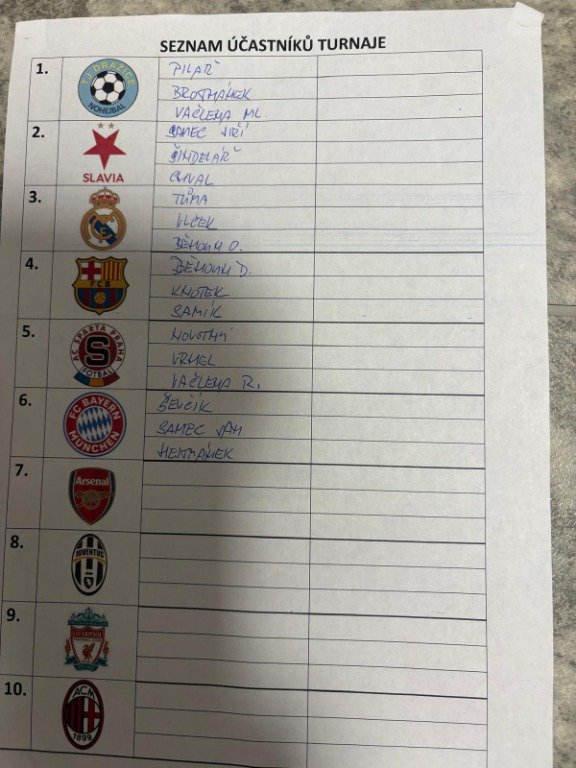 SEZNAM ÚČASTNÍKŮ TURNAJE
1.
DRAŽICE
NOHEJBAL
PILAŘ
BROTMÁNEK
VAČLENA ML.
2.
SLAVIA
SAMEC JIŘÍ
ŠINDELÁŘ
CHVAL
3.
TŮMA
VLČEK
BĚHOUN O.
4.
FCB
BĚHOUN D.
KNOTEK
SAMÍK
5.
AC SPARTA PRAHA
FOTBAL
NOVOTNÝ
VRHEL
VAČLENA R.
6.
FC BAYERN
MÜNCHEN
ŠEVČÍK
SAMEC JAN
HEJTMÁNEK
7.
Arsenal
8.
JUVENTUS
9.
LIVERPOOL
10.
ACM
1899